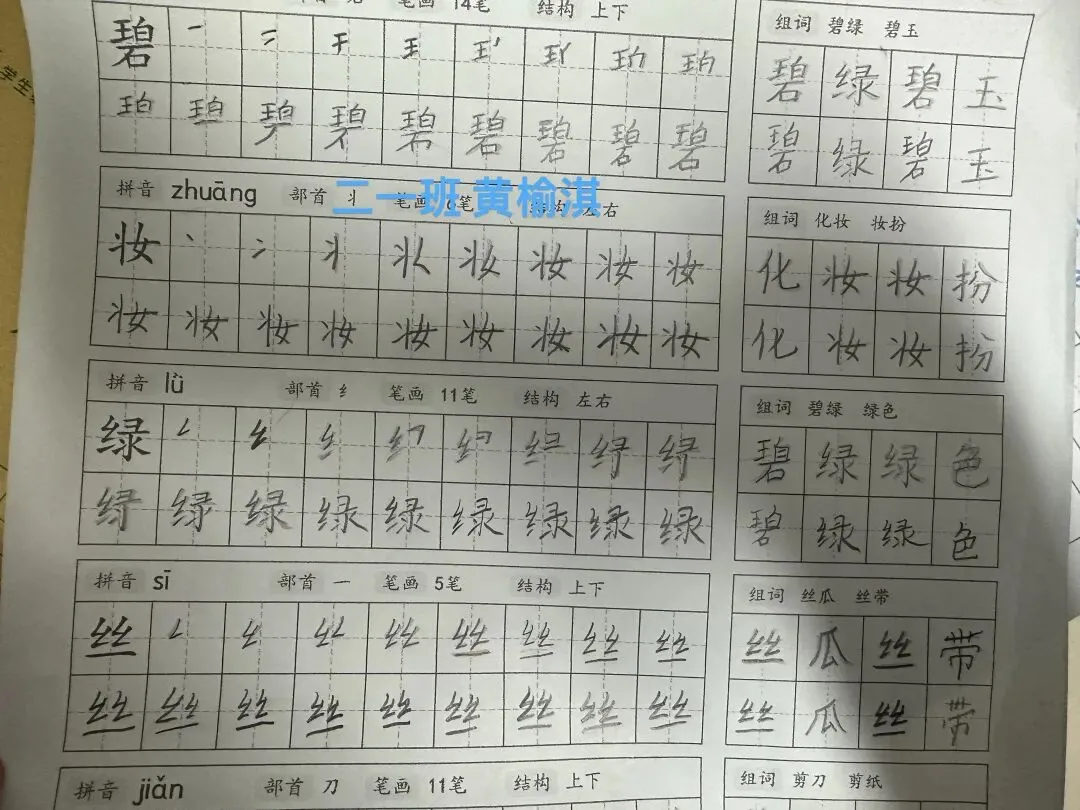 笔画 14笔 结构 上下
组词 碧绿 碧玉
碧 一 二 干 王
碧 绿 碧 玉
碧 碧 碧 碧 碧
碧 绿 碧 玉
学生
二一班 黄榆淇
拼音 zhuāng 部首 丬 笔画 6笔 结构 左右
组词 化妆 妆扮
妆 丶 冫 丬 妆 妆 妆 妆
化 妆 妆 扮
妆 妆 妆 妆 妆 妆 妆 妆 妆
化 妆 妆 扮
拼音 lǜ 部首 纟 笔画 11笔 结构 左右
组词 碧绿 绿色
绿 纟
碧 绿 绿 色
绿 绿 绿 绿 绿 绿 绿
碧 绿 绿 色
拼音 sī 部首 一 笔画 5笔 结构 上下
组词 丝瓜 丝带
丝 丝 丝 丝 丝
丝 瓜 丝 带
丝 丝 丝 丝 丝 丝 丝 丝 丝
丝 瓜 丝 带
拼音 jiǎn 部首 刀 笔画 11笔 结构 上下
组词 剪刀 剪纸